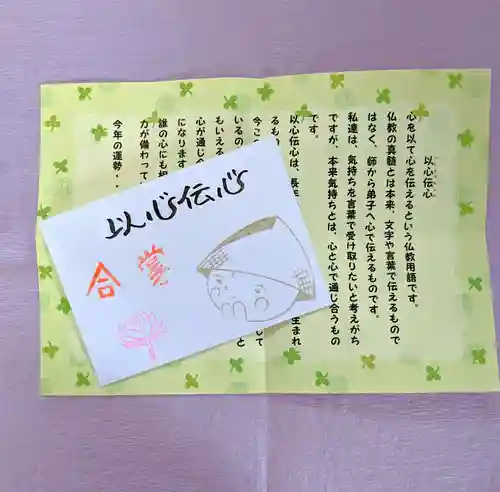 以心伝心
心を以て心を伝えるという仏教用語です。
仏教の真髄とは本来、文字や言葉で伝えるもので
はなく、師から弟子へ心で伝えるものです。
私達は、気持ちを言葉で受け取りたいと考えがち
ですが、本来気持ちとは、心と心で通じ合うもの
です。
以心伝心は、長年
生まれ
るもの
して
今この
いるの
と
もいえる
心が通じ合
になります
誰の心にも
力が備わって
今年の運勢・・
以心伝心
合掌